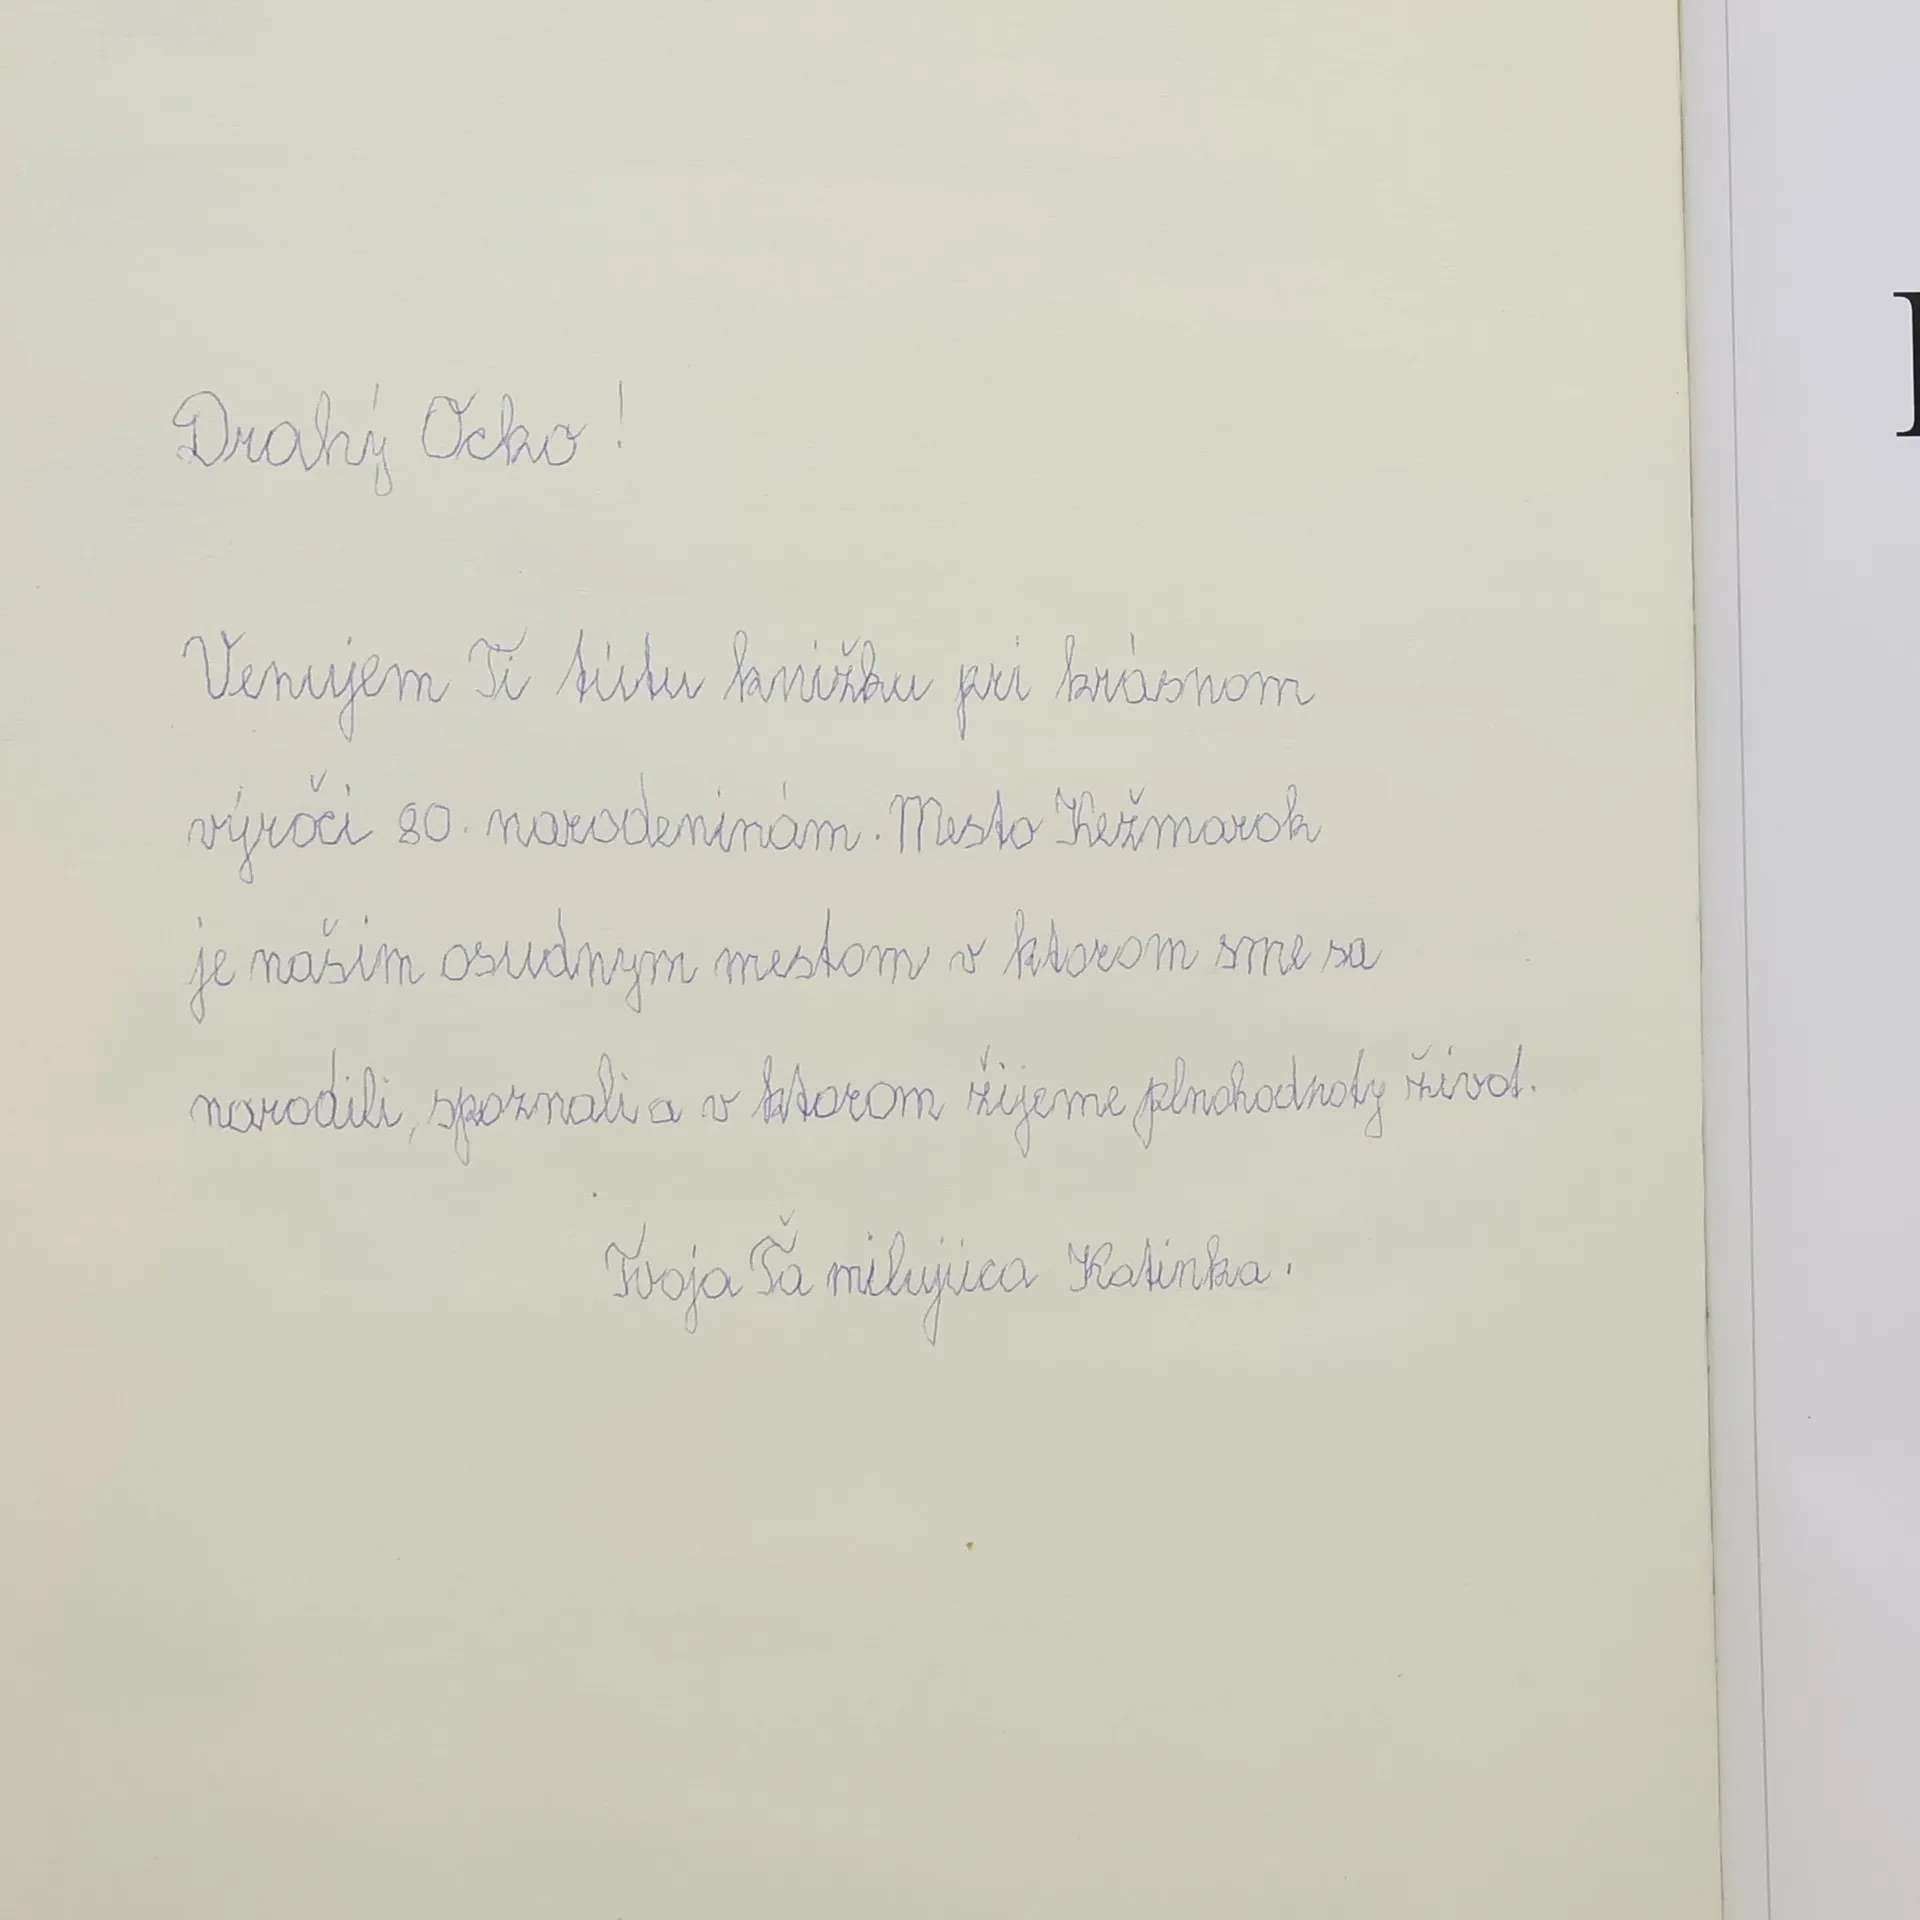 Drahý Ocko!
Venujem Ti túto knižku pri krásnom
výročí 80. narodeninám. Mesto Kežmarok
je našim osudným mestom v ktorom sme sa
narodili, spoznali a v ktorom žijeme plnohodnotý život.
Tvoja Ťa milujúca Katinka.